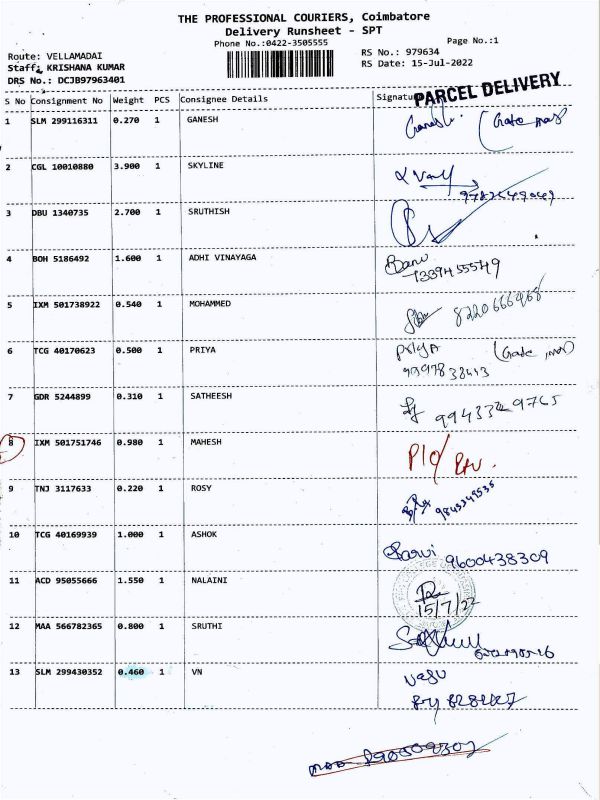 THE PROFESSIONAL COURIERS, Coimbatore
Delivery Runsheet - SPT
Phone No.:0422-3505555
Page No.:1
Route: VELLAMADAI
Staff: KRISHANA KUMAR
DRS No.: DCJB97963401
RS No.: 979634
RS Date: 15-Jul-2022
PARCEL DELIVERY
S No Consignment No Weight PCS Consignee Details Signature
1 SLM 299116311 0.270 1 GANESH Ganesh (Gate
2 CGL 10010880 3.900 1 SKYLINE
3 DBU 1340735 2.700 1 SRUTHISH
4 BOH 5186492 1.600 1 ADHI VINAYAGA Banu
5 IXM 501738922 0.540 1 MOHAMMED 8220666968
6 TCG 40170623 0.500 1 PRIYA Priya (Gate
7 GDR 5244899 0.310 1 SATHEESH
8 IXM 501751746 0.980 1 MAHESH
9 TNJ 3117633 0.220 1 ROSY 9843349535
10 TCG 40169939 1.000 1 ASHOK 9600438309
11 ACD 95055666 1.550 1 NALAINI
15/7/22
12 MAA 566782365 0.800 1 SRUTHI
13 SLM 299430352 0.460 1 VN Vasu